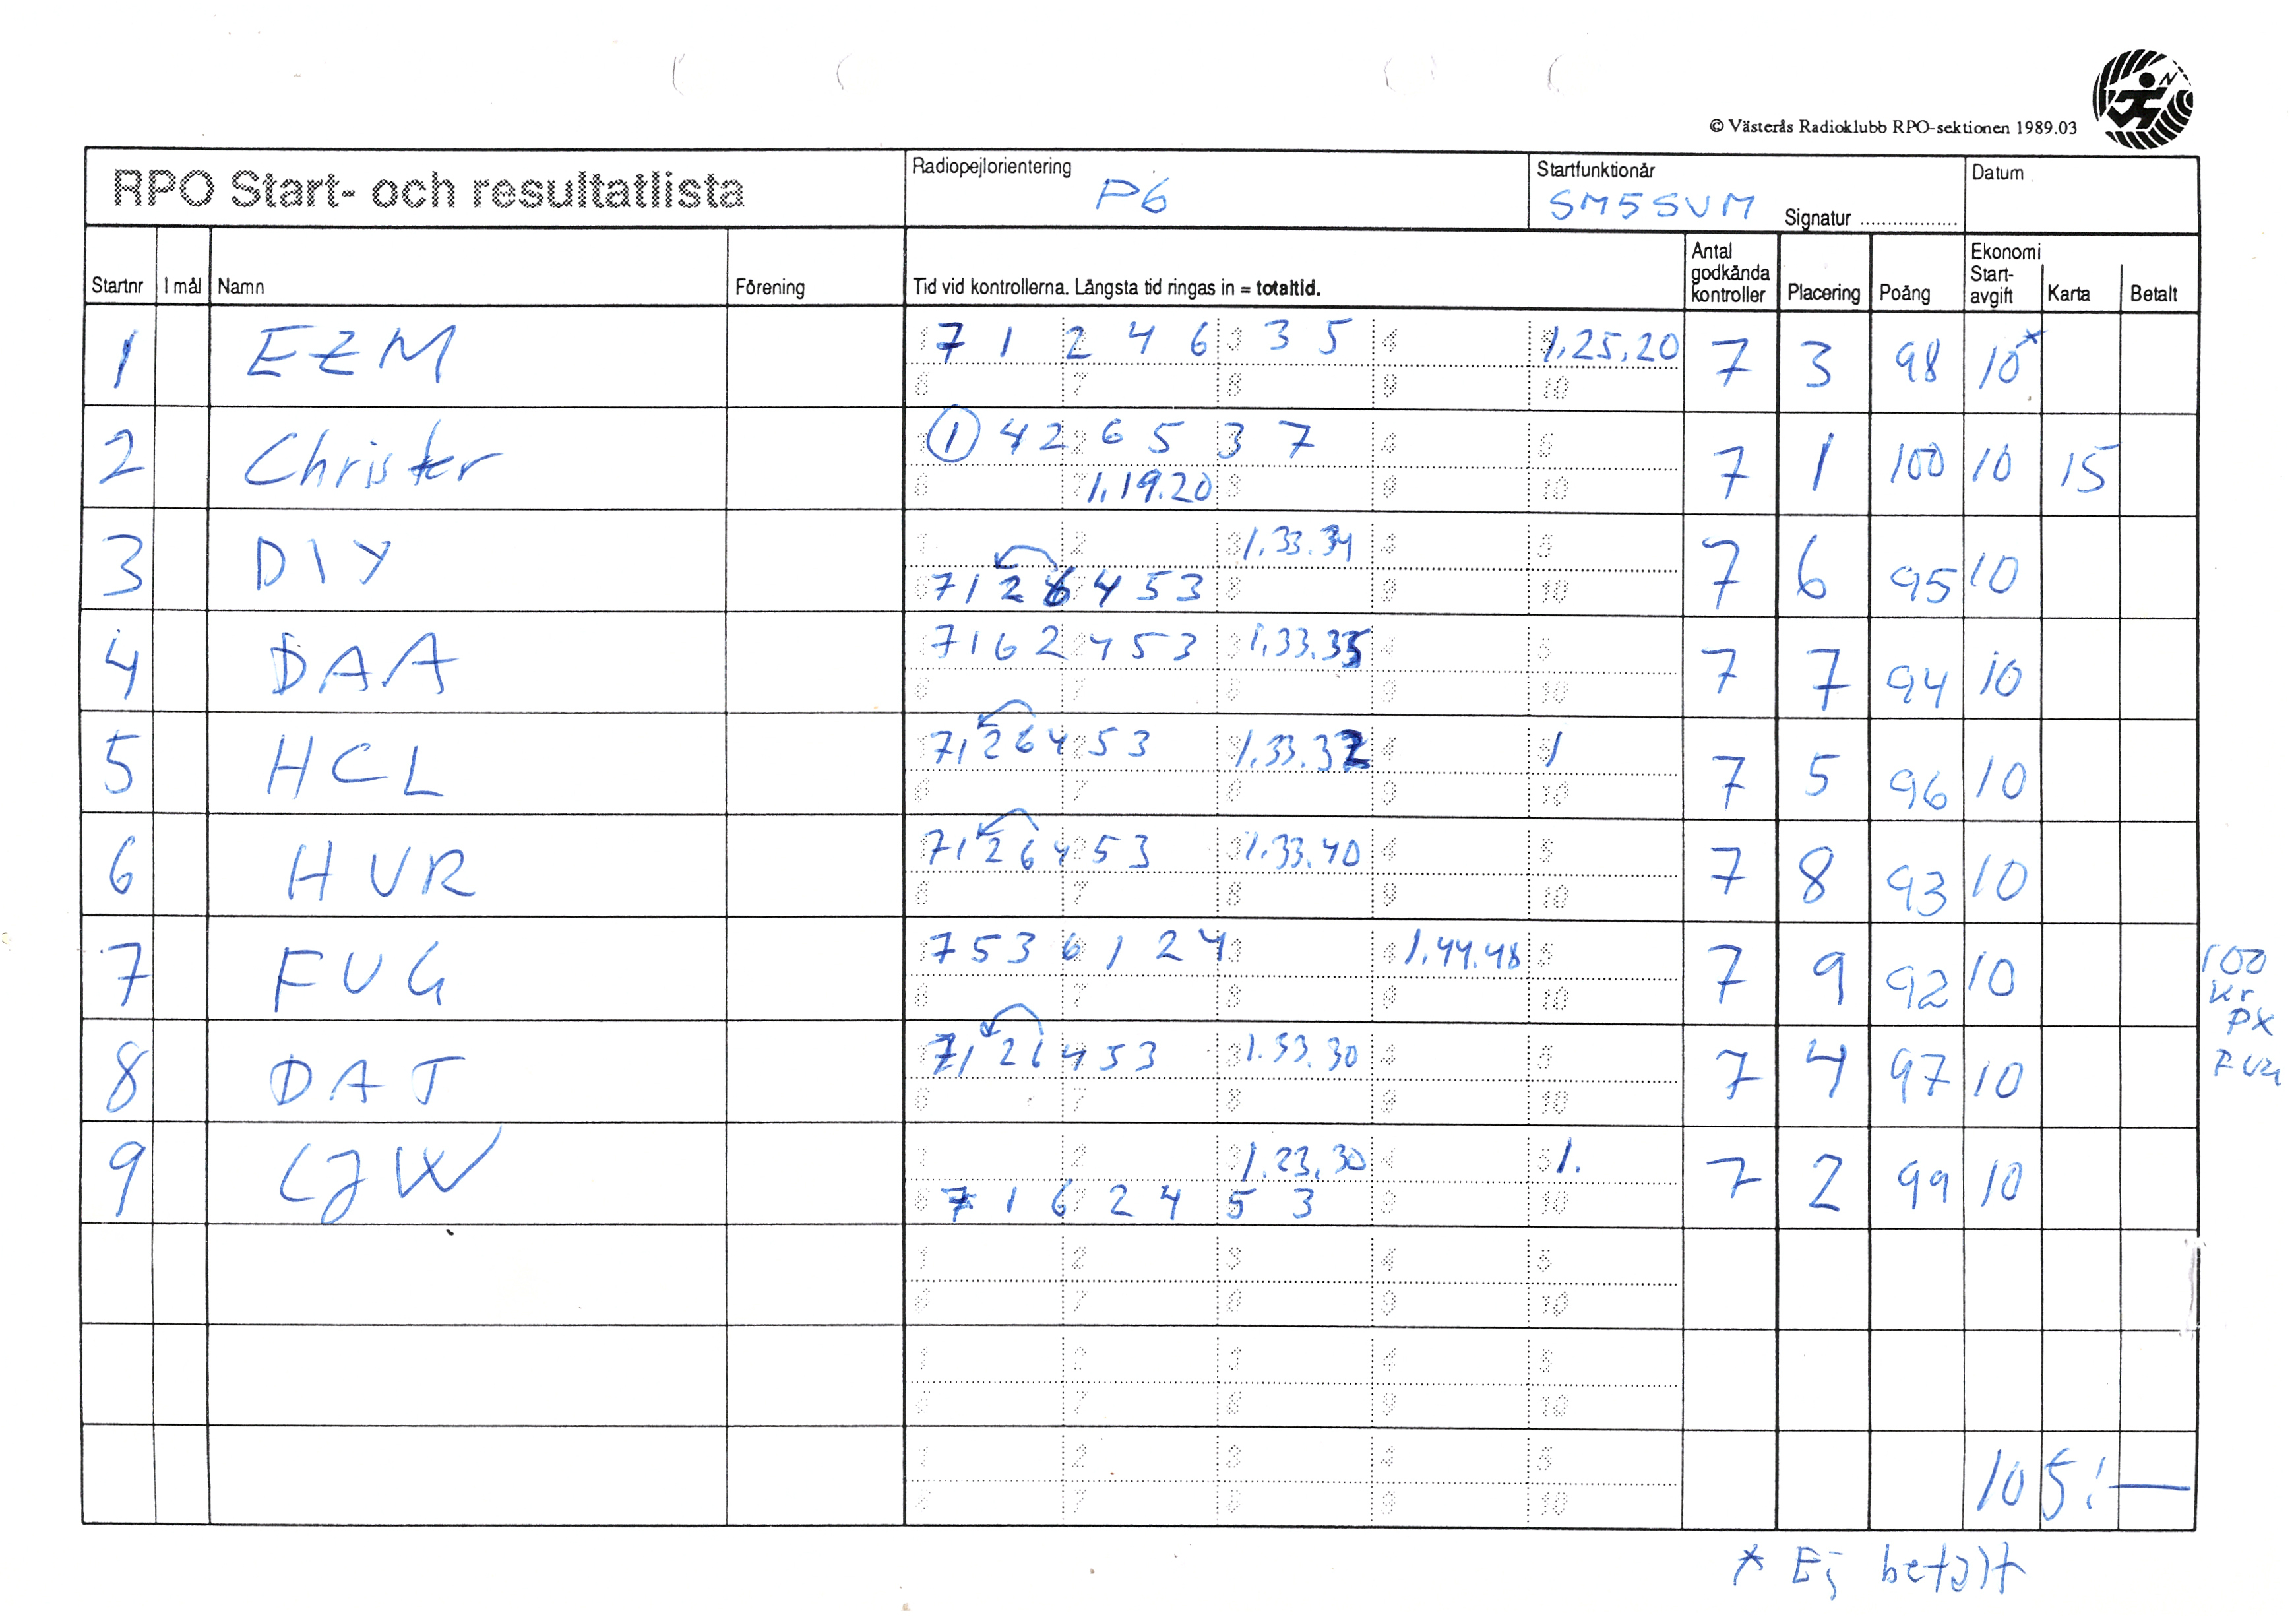 © Västerås Radioklubb RPO-sektionen 1989.03
RPO Start- och resultatlista
Radiopejlorientering P6
Startfunktionär SM5SVM Signatur ................
Datum
Startnr I mål Namn Förening Tid vid kontrollerna. Längsta tid ringas in = totaltid. Antal godkända kontroller Placering Poäng Ekonomi Start-avgift Karta Betalt
1 EZM 7 1 2 4 6 3 5 1.25.20 7 3 98 10*
2 Christer 1 4 2 6 5 3 7 1.19.20 7 1 100 10 15
3 DIY 1.33.34 7 6 95 10
7 1 2 6 4 5 3
4 DAA 7 1 6 2 4 5 3 1.33.35 7 7 94 10
5 HCL 7 1 2 6 4 5 3 1.33.32 1 7 5 96 10
6 HVR 7 1 2 6 4 5 3 1.33.40 7 8 93 10
7 FUG 7 5 3 6 1 2 4 1.44.48 7 9 92 10
100
kr
PX
FUG
8 DAT 7 1 2 6 4 5 3 1.33.30 7 4 97 10
9 CJW 1.23.30 1. 7 2 99 10
7 1 6 2 4 5 3
105:—
* Ej betalt